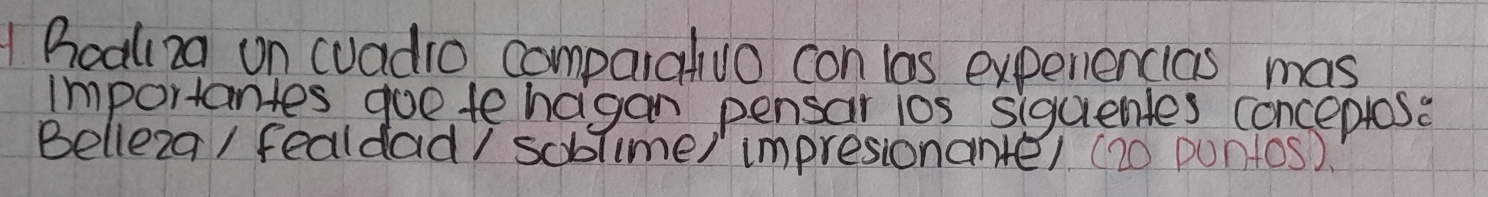 1 Realiza un cuadro comparativo con las experiencias mas
importantes que te hagan pensar los siguentes conceptos:
Belleza / fealdad / soblime / impresionante / (20 puntos).